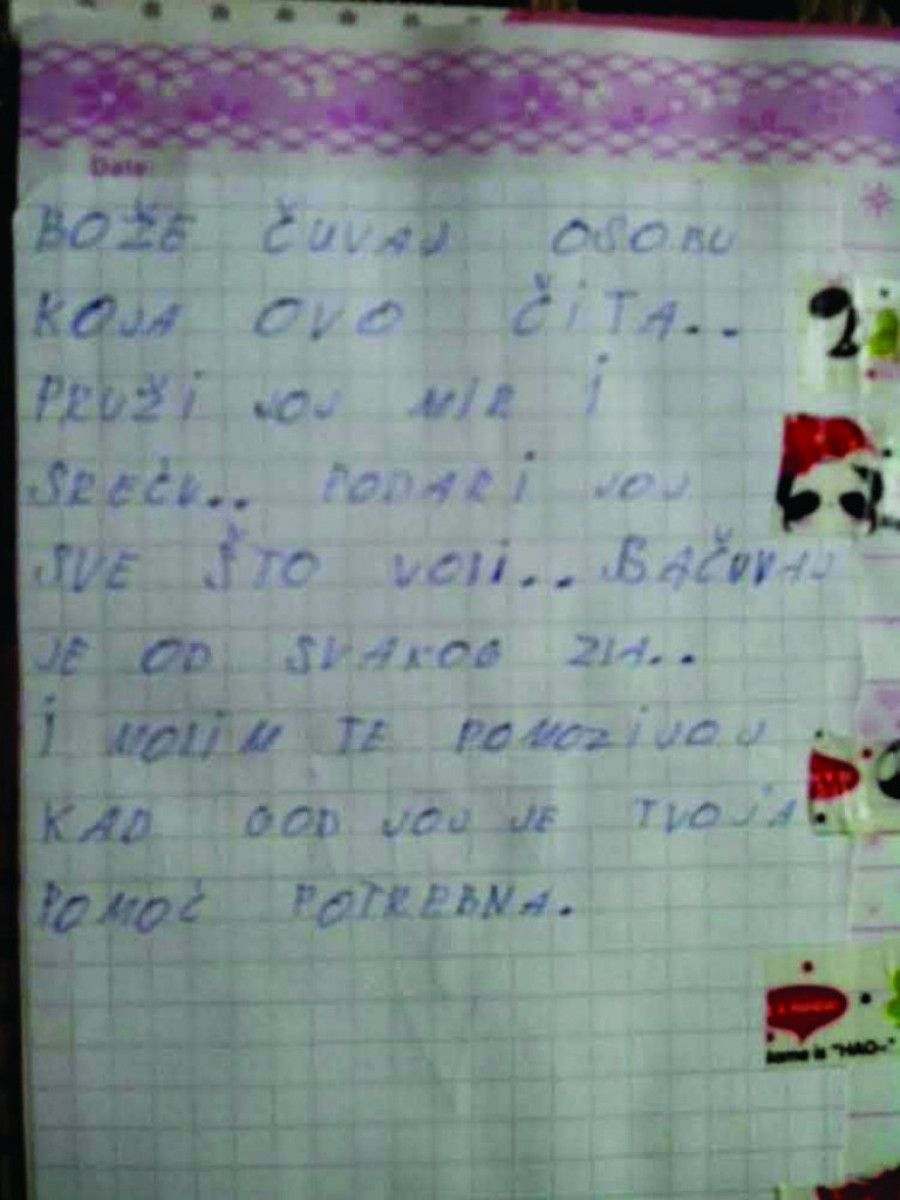 Date:
BOŽE ČUVAJ OSOBU
KOJA OVO ČiTA..
PRUŽi JOJ MIR i
SREĆU.. PODARi JOJ
SVE ŠTO VOLI.. SAČUVAJ
JE OD SVAKOG ZLA..
i MOLiM TE POMOZiJOJ
KAD GOD JOJ JE TVOJA
POMOĆ POTREBNA.
name is "HAO~"